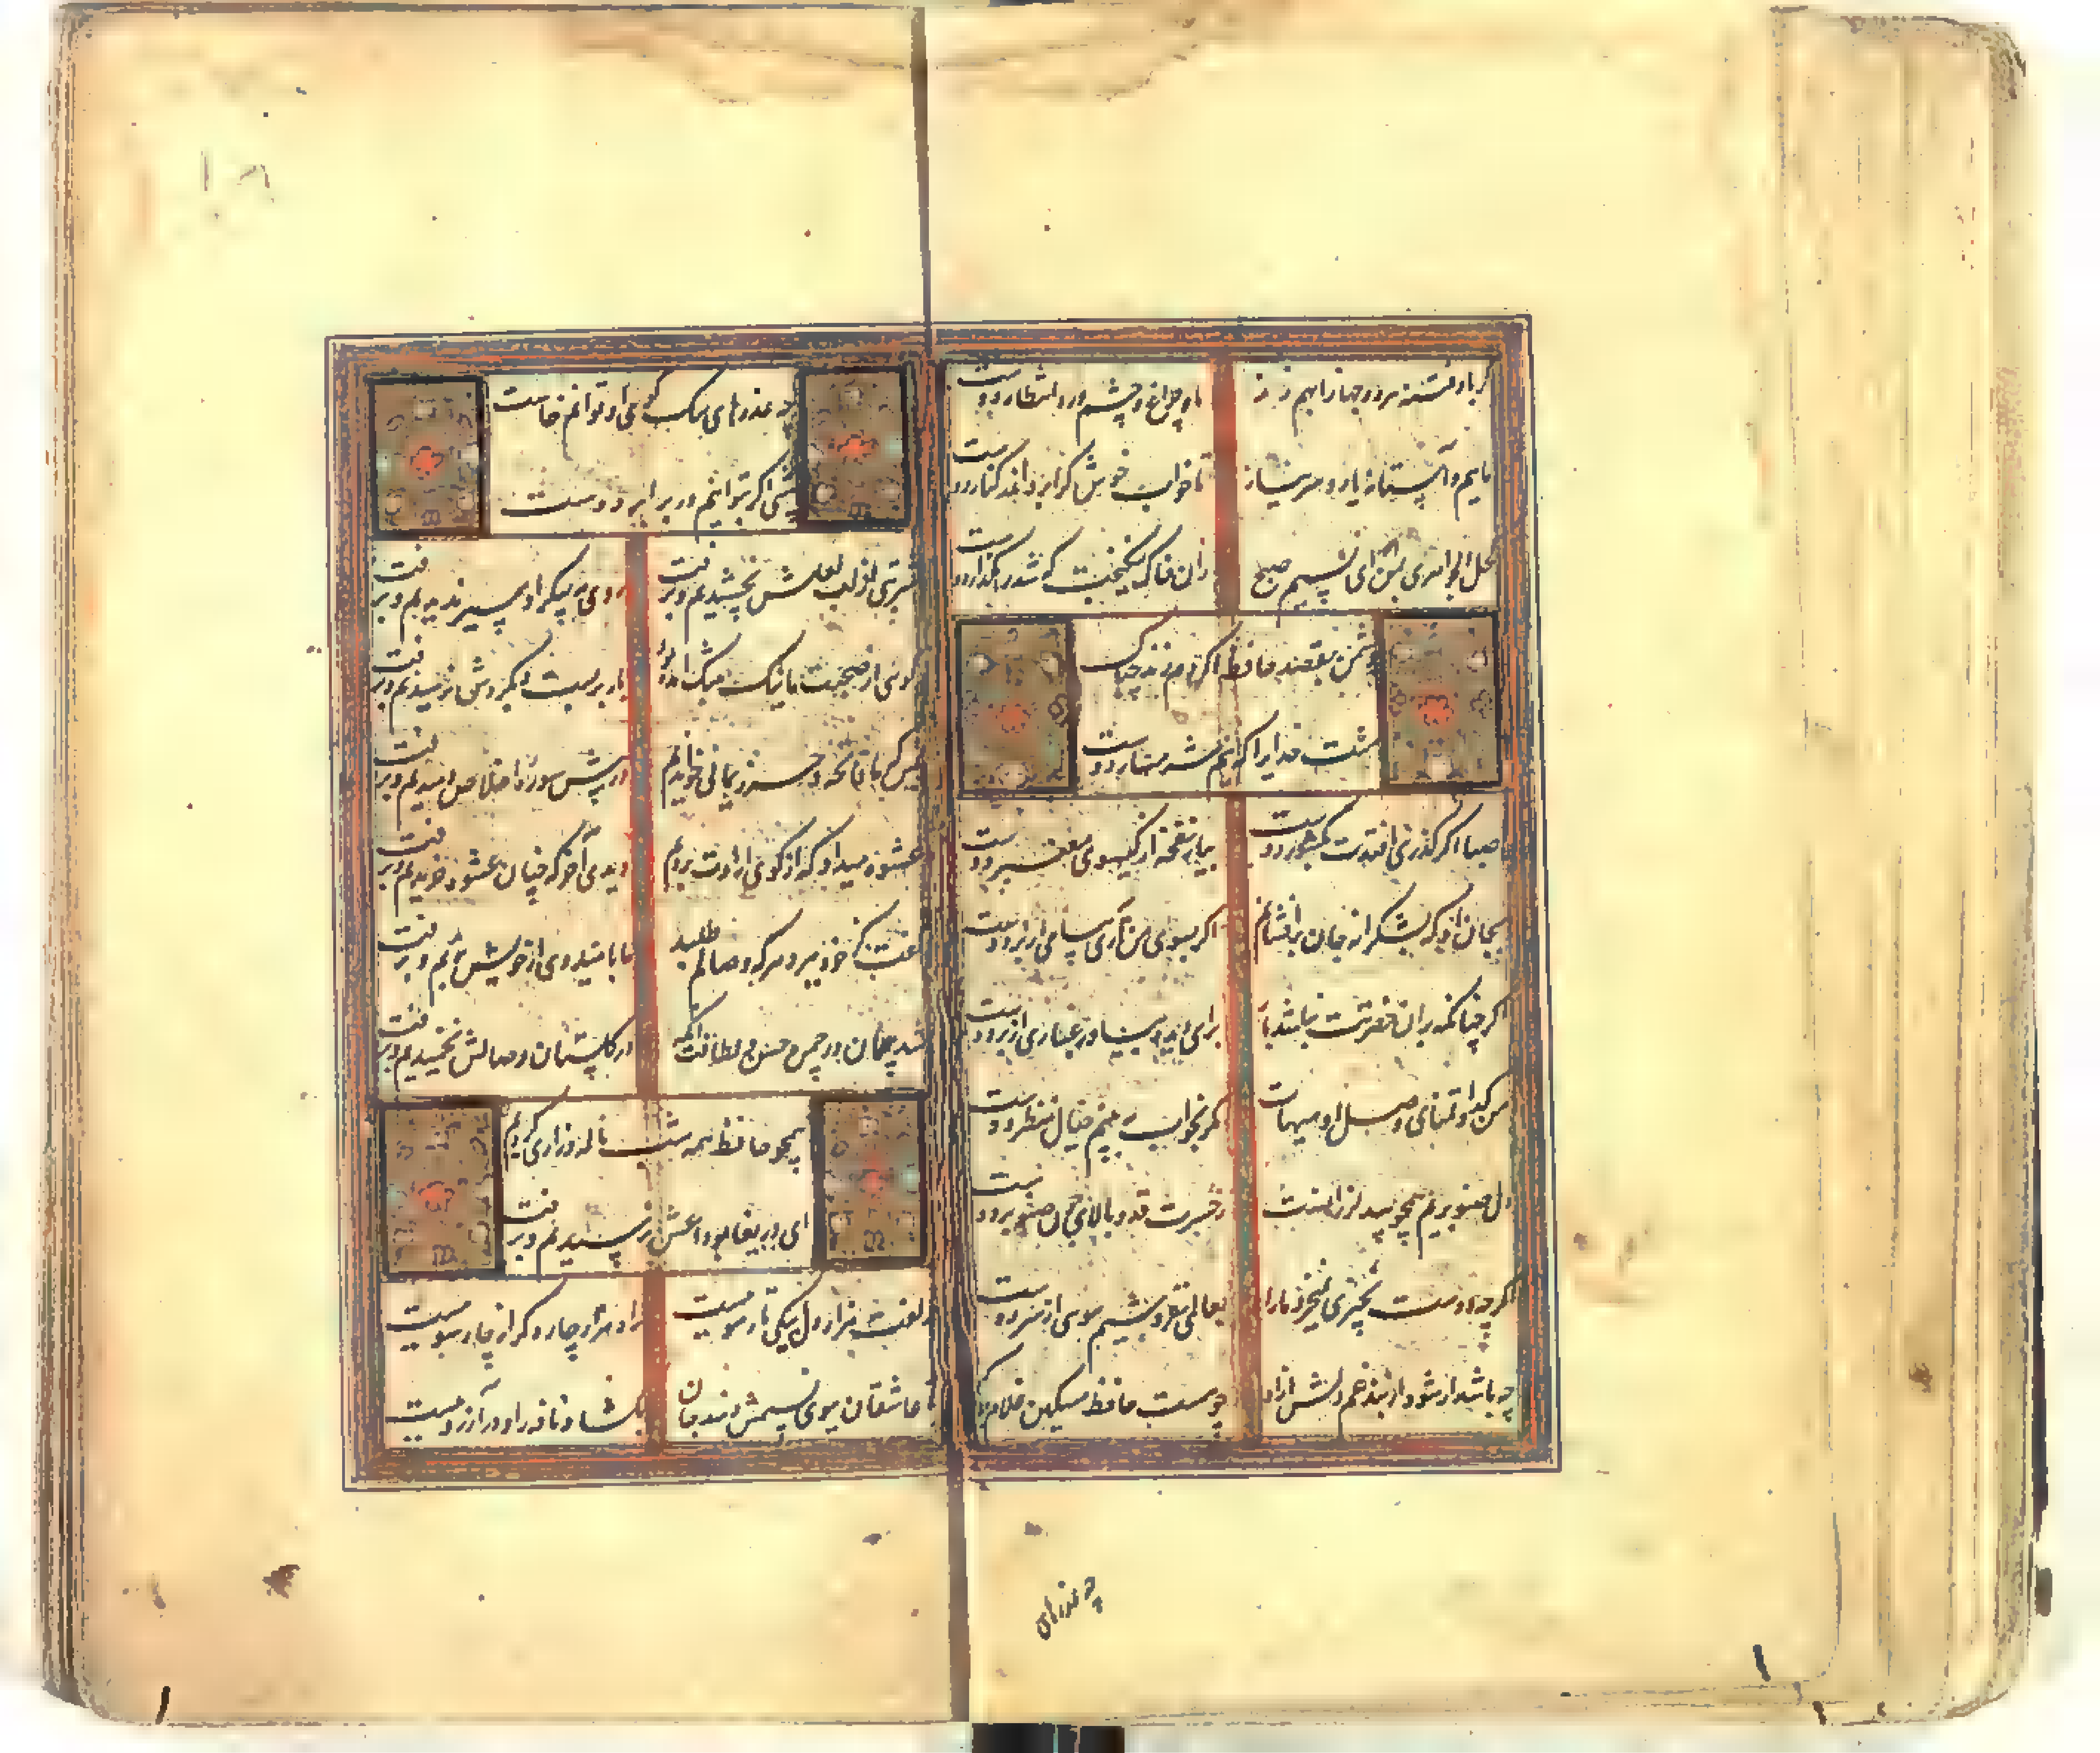 گر باد فتنه هر دو جهان را بهم زند
ما و چراغ و چشم و ره انتظار دوست
مایم و آستانه یار و سر نیاز
تا خواب خوش کرا برد اندر کنار دوست
کحل الجواهری بمن آر ای نسیم صبح
زان خاک نیکبخت که شد رهگذار دوست
دشمن بقصد حافظ اگر دم زند چه باک
منت خدایرا که نیم شرمسار دوست
صبا اگر گذری افتدت بکشور دوست
بیار نفحه از گیسوی معنبر دوست
بجان او که بشکرانه جان برافشانم
اگر بسوی من آری پیامی از بر دوست
اگر چنانکه بران حضرتت نباشد بار
برای دیده بیاور غباری از در دوست
من گدا و تمنای وصل او هیهات
مگر بخواب به بینم خیال منظر دوست
دل صنوبریم همچو بید لرزانست
ز حسرت قد و بالای چون صنوبر دوست
اگر چه دوست بچیزی نمیخرد ما را
بعالمی نفروشیم موی از سر دوست
چه باشد ار شود از بند غم دلش آزاد
چو هست حافظ مسکین غلام
چه عذرهای
چه عذرهای سگ کوی او توانم خواست
شبی اگر بتوانم در برابر دوست
شربتی از لب لعلش نچشیدیم و برفت
روی مه پیکر او سیر ندیدیم و برفت
گوئی از صحبت ما نیک بتنگ آمده بود
بار بربست و بگردش نرسیدیم و برفت
بس که ما فاتحه و حرز یمانی خواندیم
در پیش سوره اخلاص دمیدیم و برفت
عشوه میداد که از کوی ارادت نروم
دیدی آخر که چنان عشوه خریدیم و برفت
گفت از خود ببرد هر که وصالم طلبد
ما بامید وی از خویش بریدیم و برفت
شد چمان در چمن حسن و لطافت
در گلستان وصالش نچمیدیم و برفت
همچو حافظ همه شب ناله و زاری کردیم
ای دریغا بوداعش نرسیدیم و برفت
زلفت هزار دل بیکی تار مو ببست
راه هزار چاره گر از چار سو ببست
تا عاشقان ببوی نسیمش دهند جان
بگشاد نافه را و در آرزو ببست